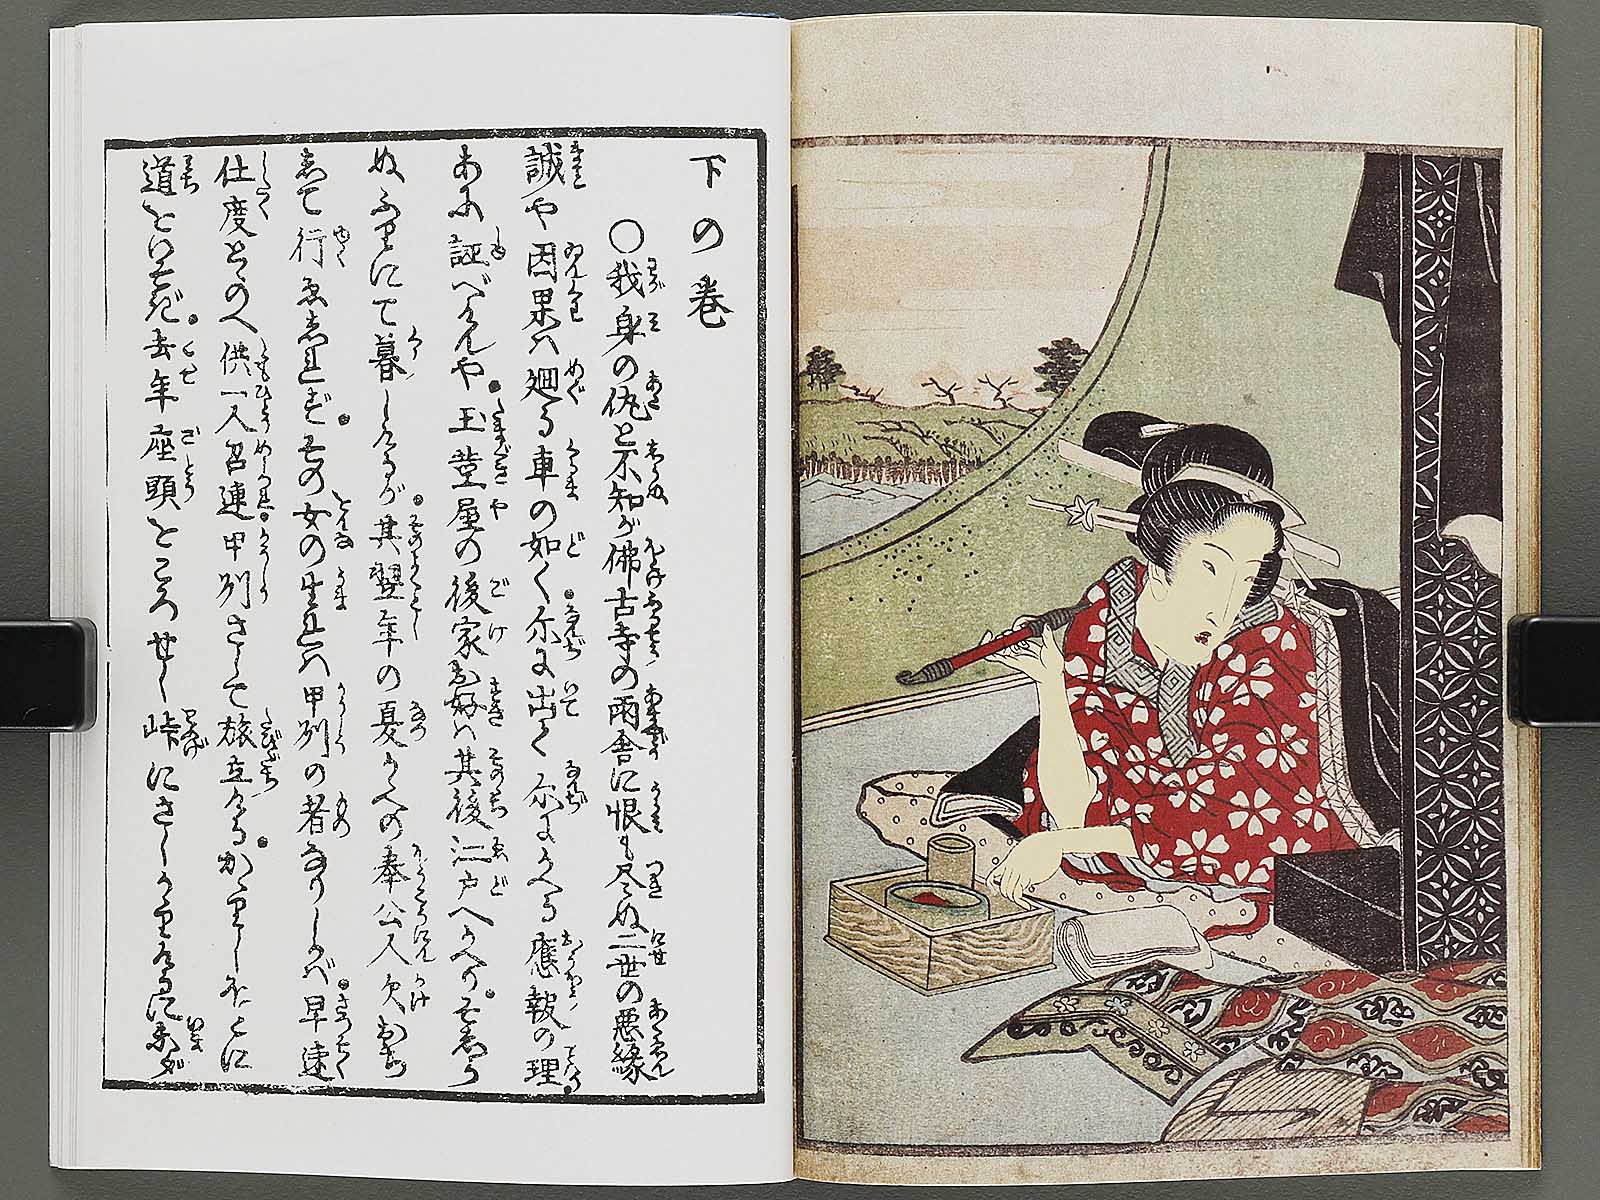 下の巻
○我身の仇と不知が佛古寺の雨舎に恨も尽ぬ二世の悪縁
誠や因果ハ廻る車の如く尓に出て尓にかへる應報の理
あに誣べけんや玉莖屋の後家お好ハ其後江戸へかへり
ぬふりにて暮しけるが其翌年の夏かへの奉公人欠おち
して行ゑしれずその女の生れハ甲州の者なりしかバ早速
仕度とゝのへ供一人召連甲州さして旅立ける
道といそぎ去年座頭をころせし峠にさしかゝりけるに